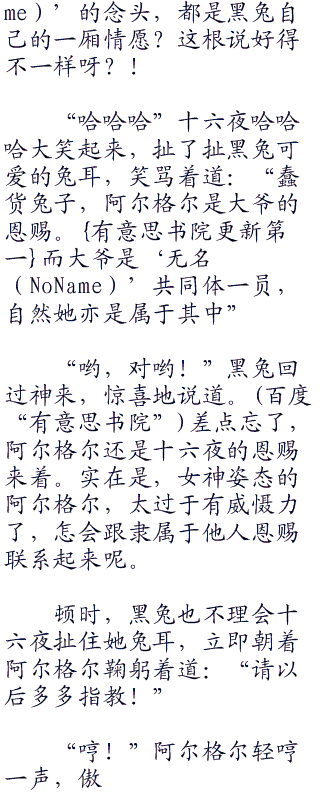 me）’的念头，都是黑兔自
己的一厢情愿？这根说好得
不一样呀？！
“哈哈哈”十六夜哈哈
哈大笑起来，扯了扯黑兔可
爱的兔耳，笑骂着道：“蠢
货兔子，阿尔格尔是大爷的
恩赐。{有意思书院更新第
一}而大爷是‘无名
（NoName）’共同体一员，
自然她亦是属于其中”
“哟，对哟！”黑兔回
过神来，惊喜地说道。(百度
“有意思书院”)差点忘了，
阿尔格尔还是十六夜的恩赐
来着。实在是，女神姿态的
阿尔格尔，太过于有威慑力
了，怎会跟隶属于他人恩赐
联系起来呢。
顿时，黑兔也不理会十
六夜扯住她兔耳，立即朝着
阿尔格尔鞠躬着道：“请以
后多多指教！”
“哼！”阿尔格尔轻哼
一声，傲